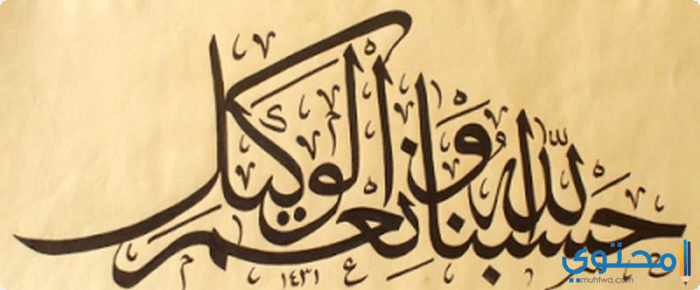 حسبنا الله ونعم الوكيل
١٤٣١
محتوي
muhtwa.com